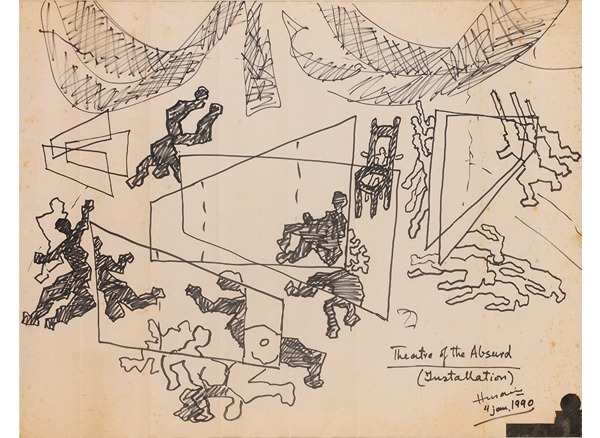 Theatre of the Absurd
(Installation)
Husain
4 Jan. 1990